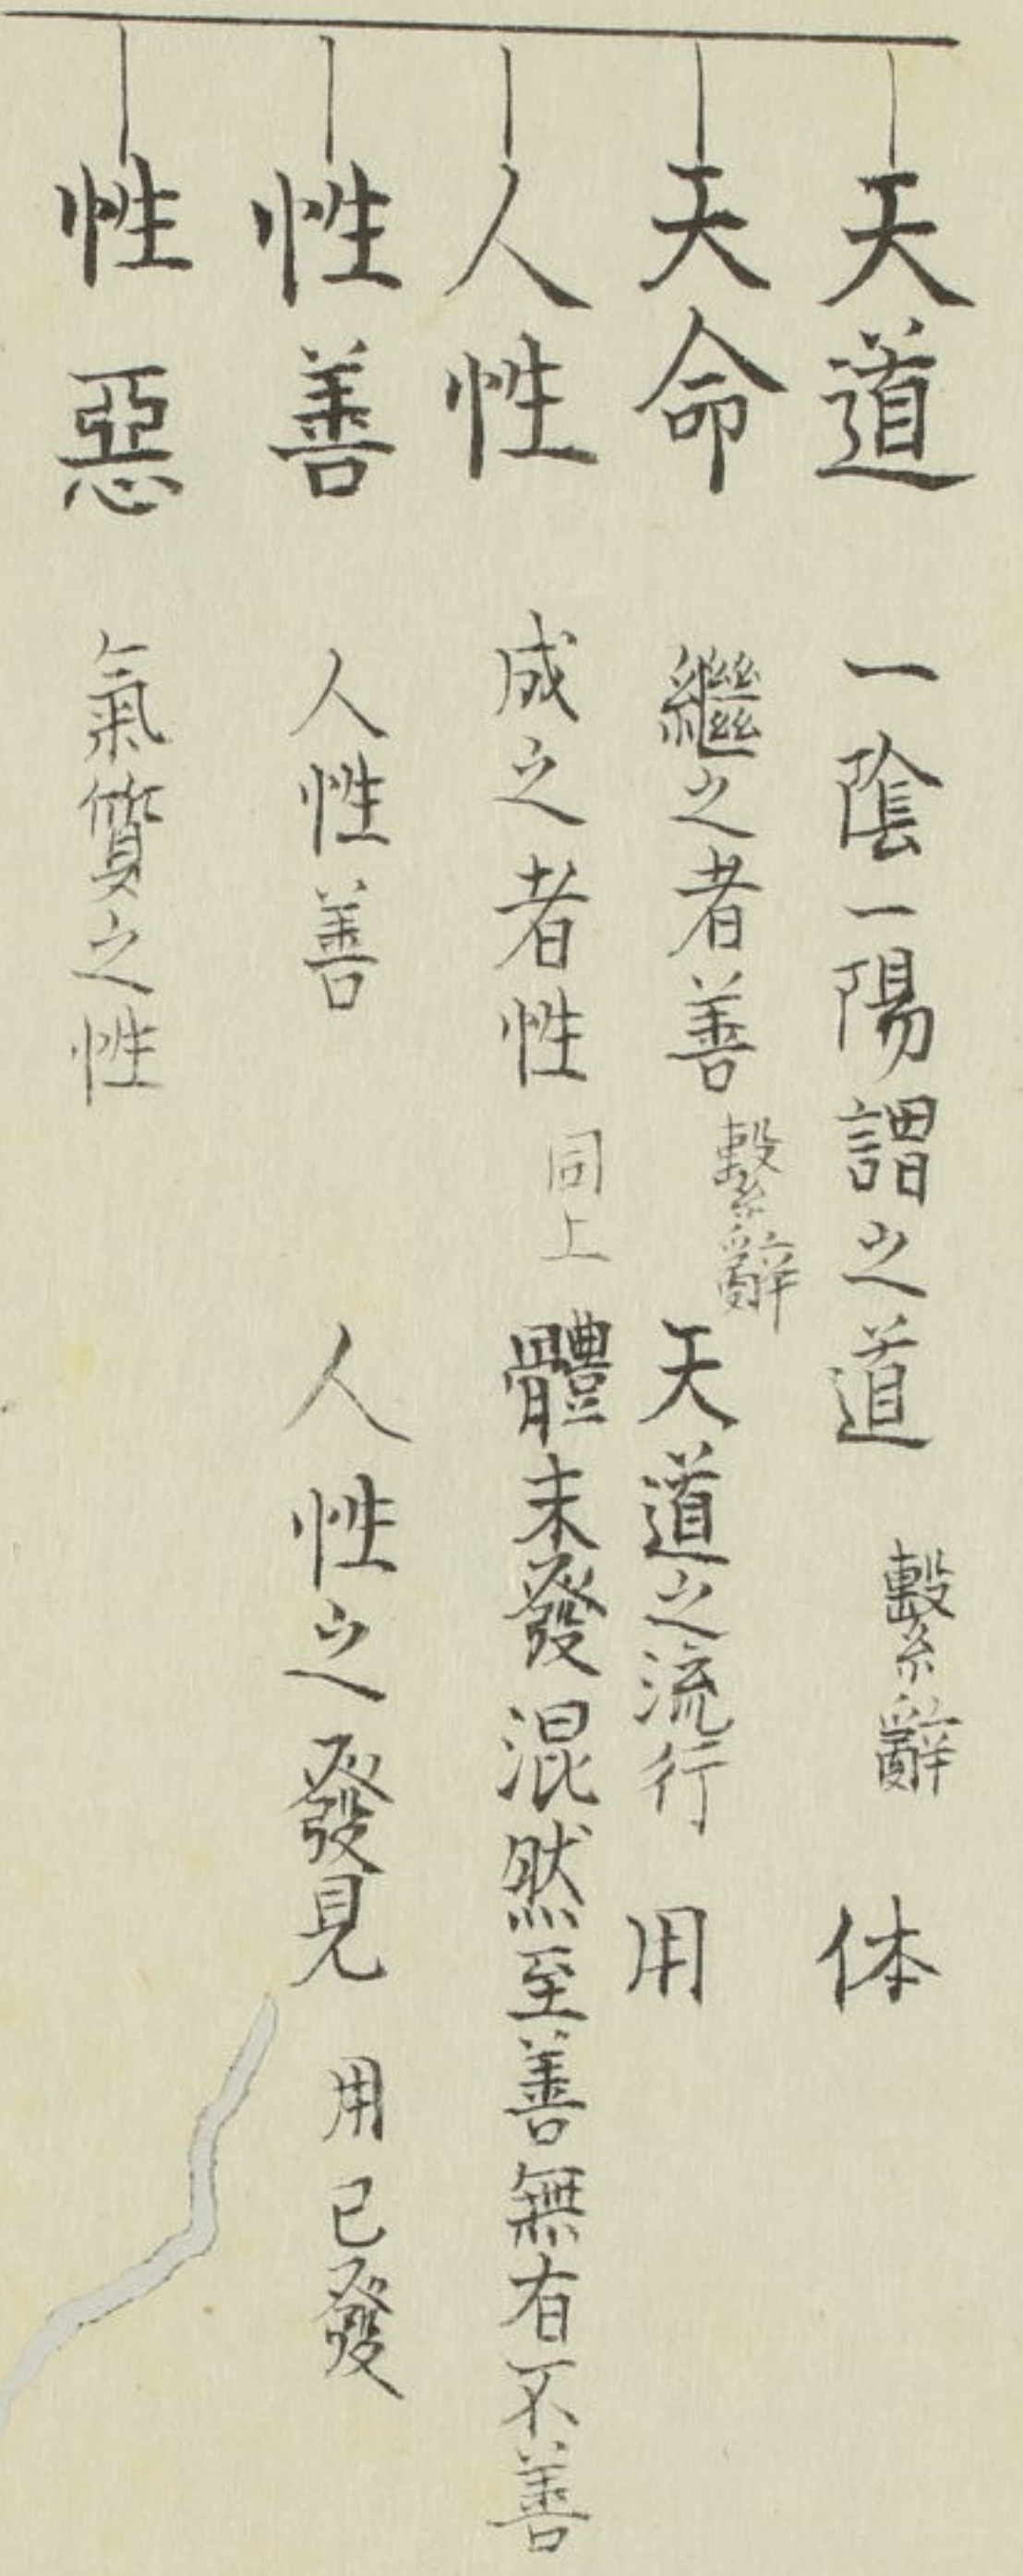 天道 一陰一陽謂之道 繫辭 体
天命 繼之者善 繫辭 天道之流行 用
人性 成之者性 同上 體未發混然至善無有不善
性善 人性善 人性之發見 用已發
性惡 氣質之性